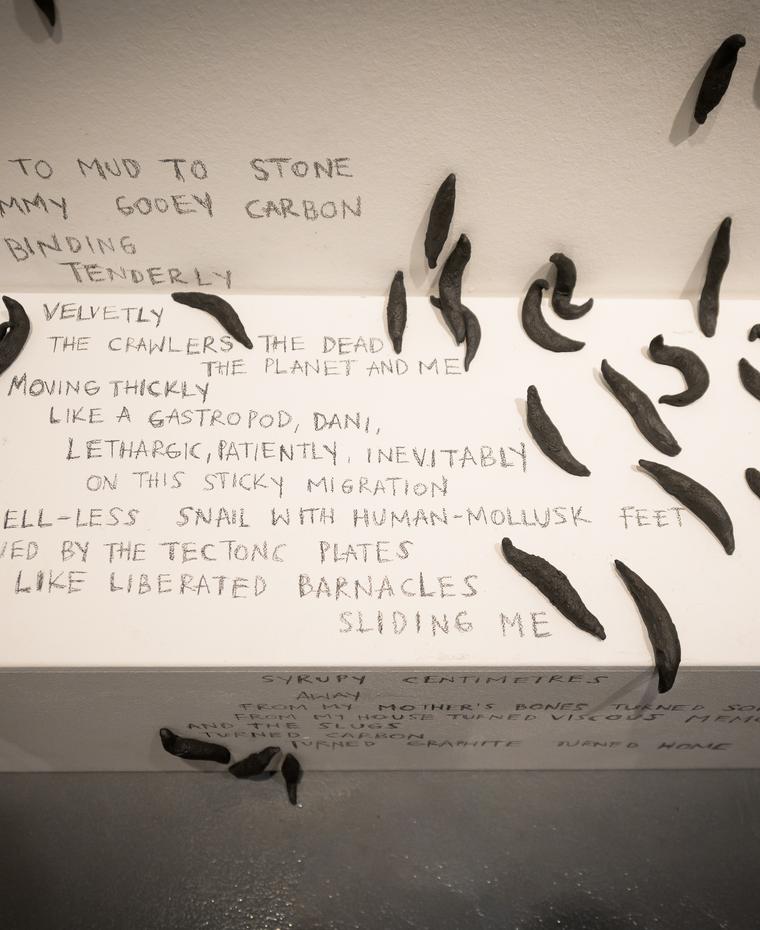 TO MUD TO STONE
MMY GOOEY CARBON
BINDING
TENDERLY
VELVETLY
THE CRAWLERS THE DEAD
THE PLANET AND ME
MOVING THICKLY
LIKE A GASTROPOD, DANI,
LETHARGIC, PATIENTLY, INEVITABLY
ON THIS STICKY MIGRATION
ELL-LESS SNAIL WITH HUMAN-MOLLUSK FEET
VED BY THE TECTONC PLATES
LIKE LIBERATED BARNACLES
SLIDING ME
SYRUPY CENTIMETRES
AWAY
FROM MY MOTHER'S BONES TURNED SO
FROM MY HOUSE TURNED VISCOUS MEMO
AND THE SLUGS
TURNED CARBON
TURNED GRAPHITE TURNED HOME